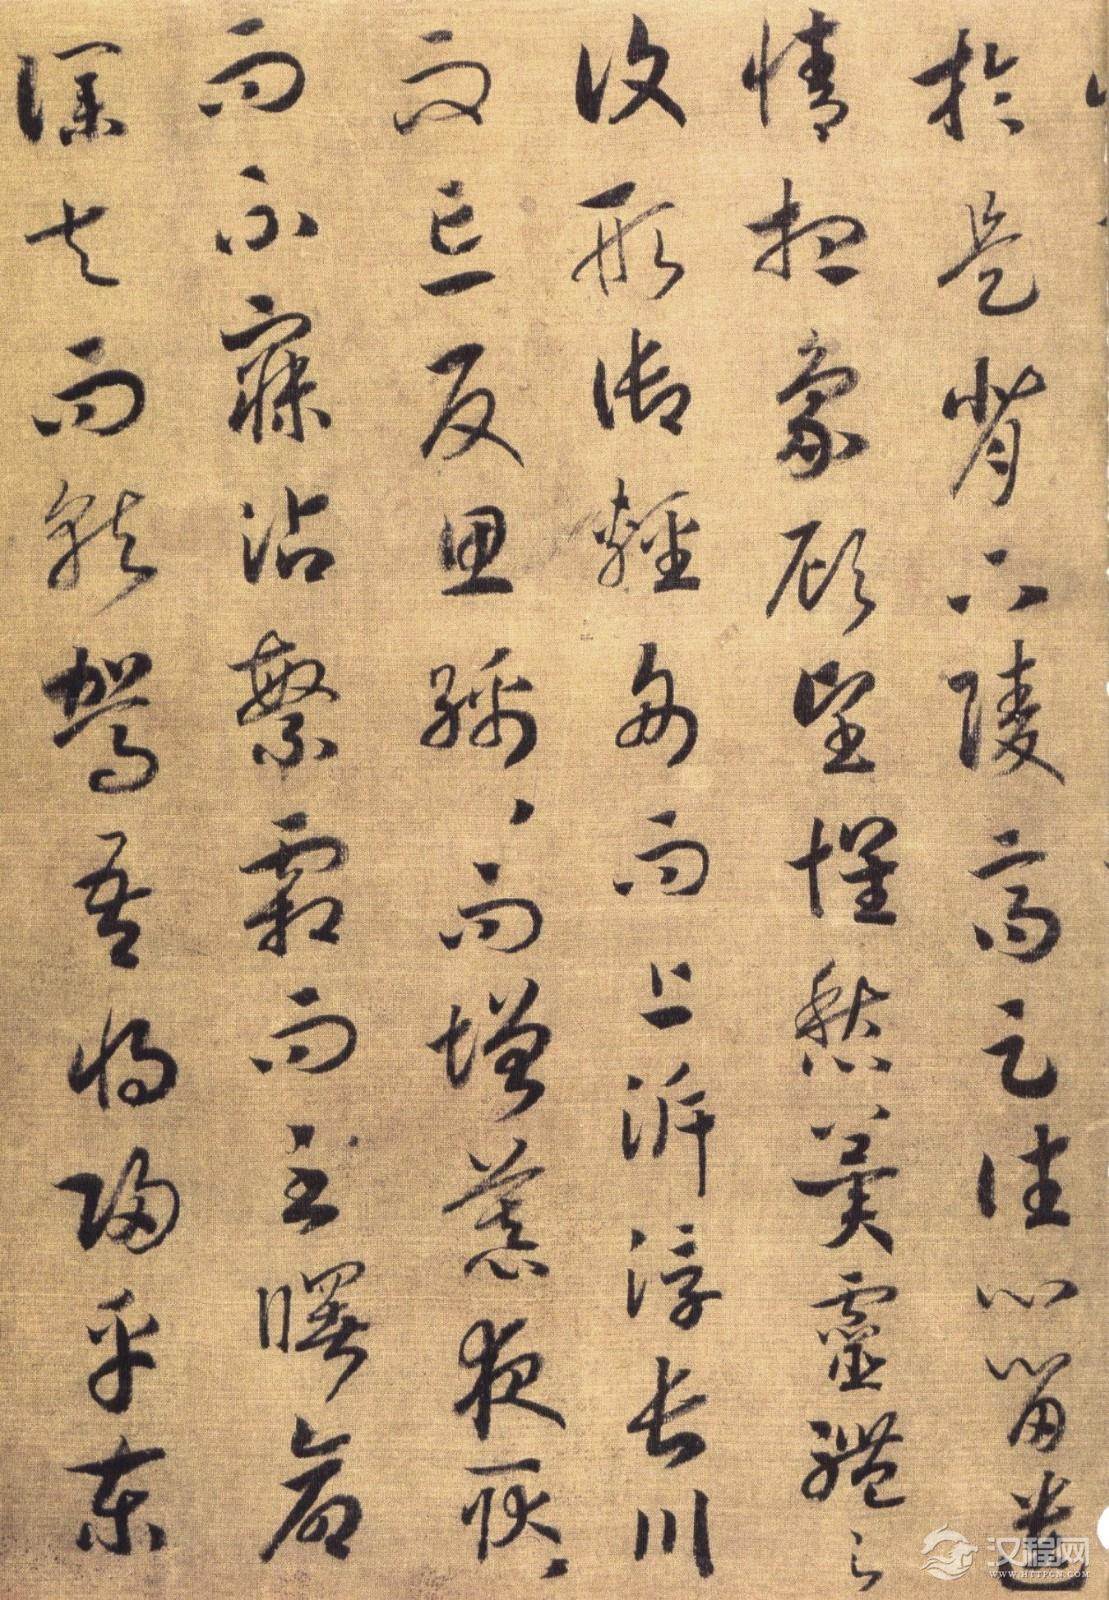 於是背下陵高足往心留遺
情想象顧望懷愁冀靈體之
復形御輕舟而上泝浮長川
而忘反思綿、而增慕夜耿、
而不寐沾繁霜而至曙命
僕夫而就駕吾將歸乎東
汉程网
WWW.HTTPCN.COM